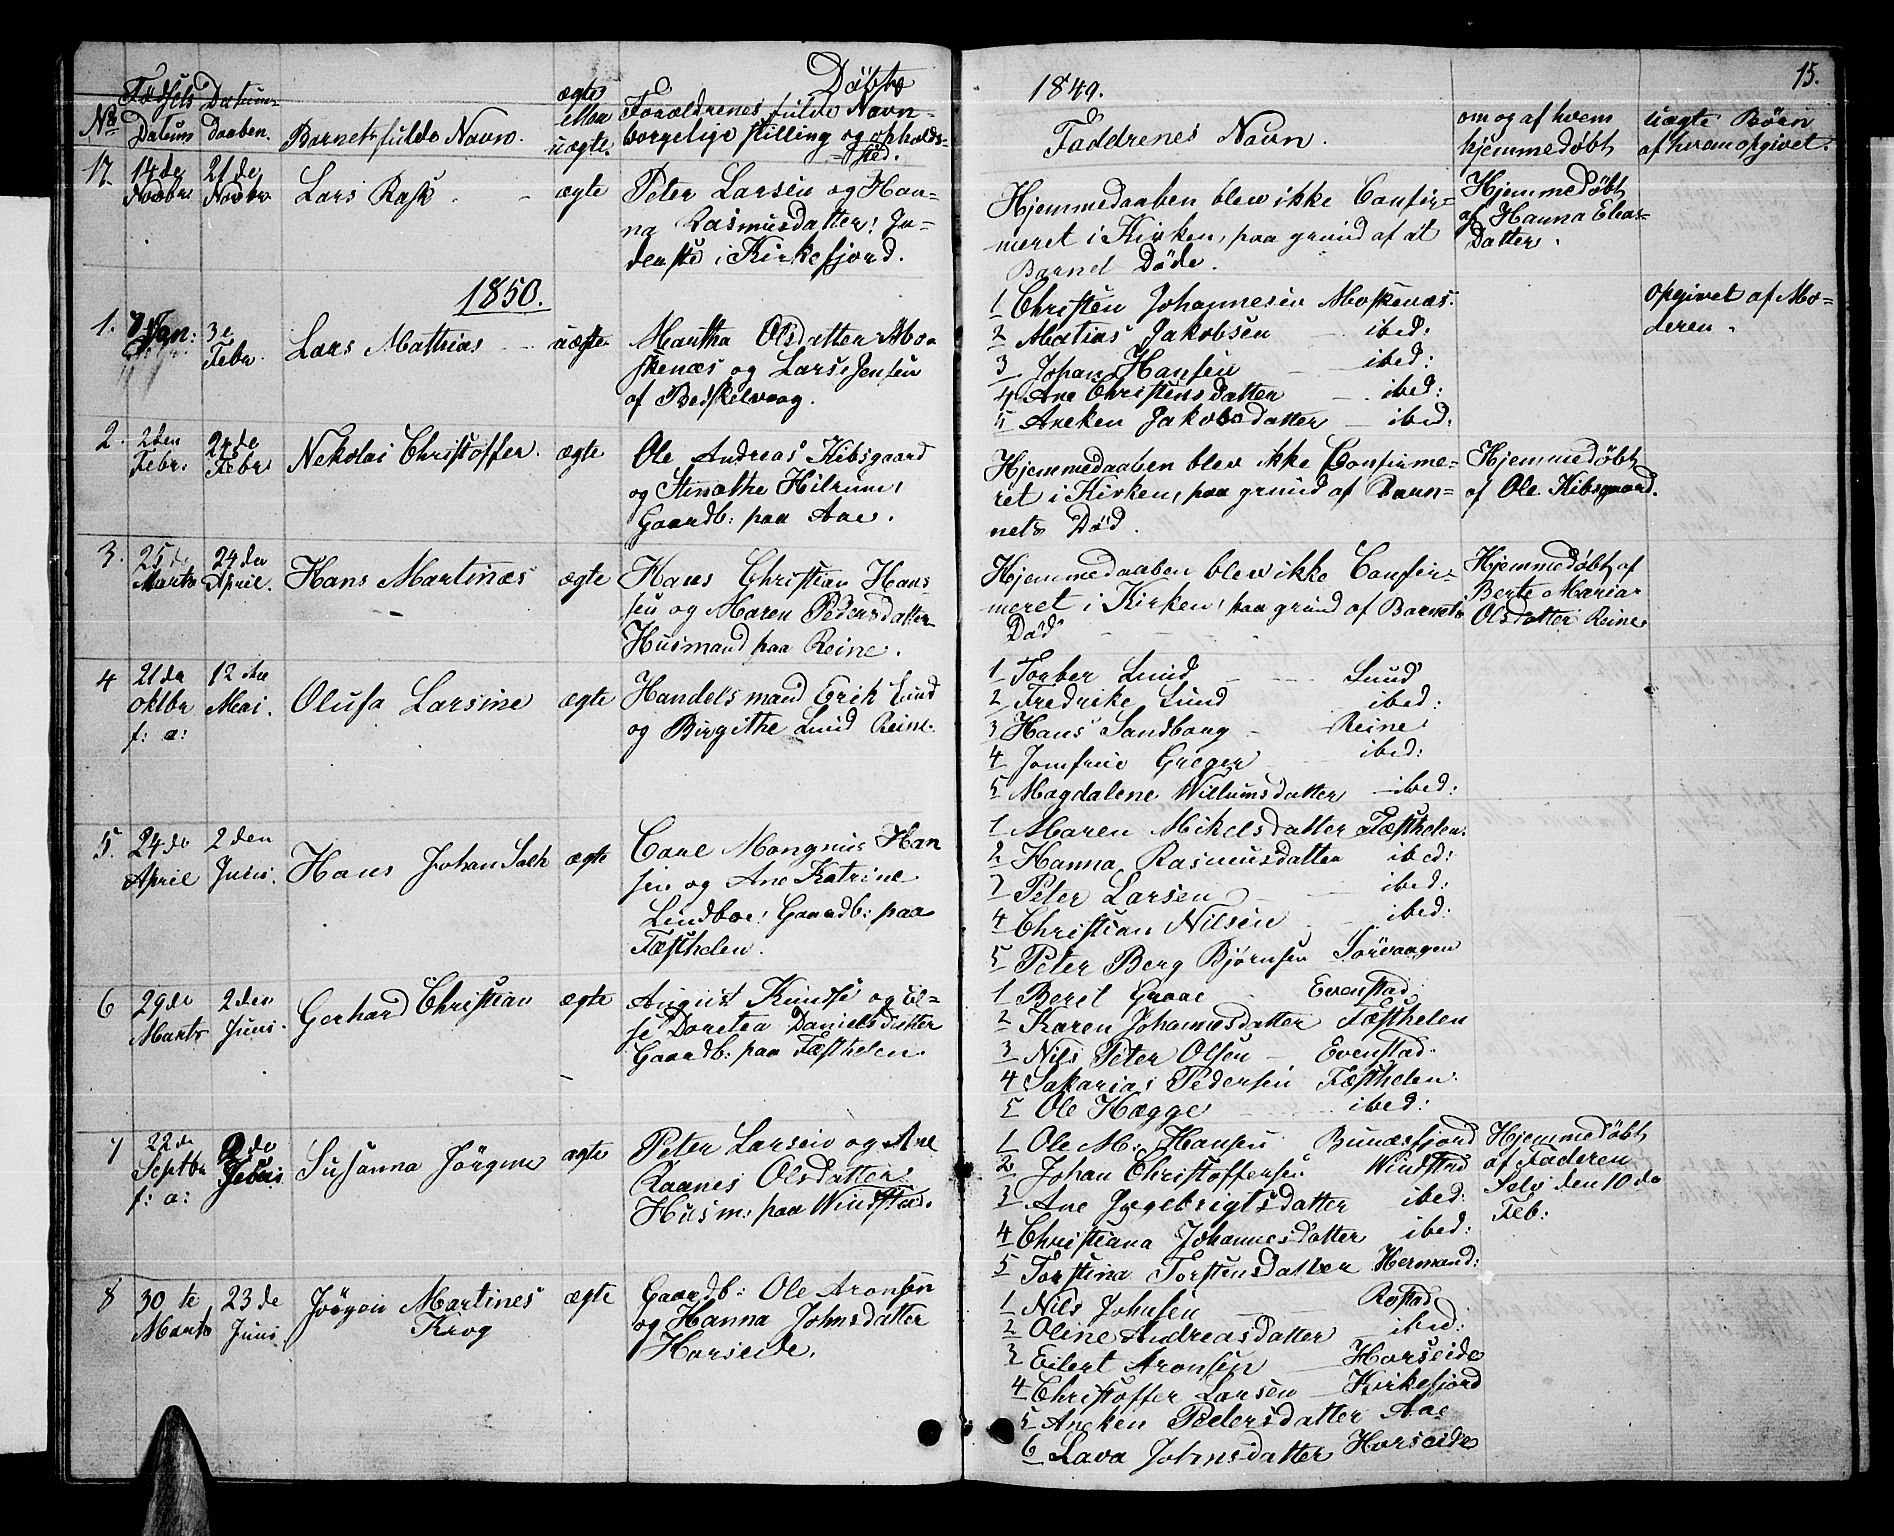 Døbte 1849. 15.
No Fødsels Datum Datum Daaben. Barnets fulde Navn. ægte eller uægte. Forældrenes fulde Navn borgelige stilling og opholds=sted. Faddrenes Navn. om og af hvem hjemmedøbt uægte Børn af hvem opgivet.
17. 14de Novbr 21de Novbr Lars Rask ægte Peter Larsen og Han=
na Rasmusdatter: In=
derste i Kirkefjord.
Hjemmedaaben blev ikke Confir=
meret i Kirken, paa grund af at
Barnet Døde.
Hjemmedøbt
af Hanna Elias=
Datter.
1850.
1. Jan: 3e Febr. Lars Mathias uægte Martha Olsdatter Mo=
skenæs og Lars Jensen
af
1 Christen Johannesen Moskenæs.
2 Matias Jakobsen ibed:
3 Johan Hansen ibed:
4 Ane Christensdatter ibed:
5 Aneken Jakobsdatter ibed:
opgivet af Mo=
deren.
2. 2den Febr. 24de Febr Nekolai Christoffer. ægte Ole Andreas Kibsgaard
og Hilrum,
Gaardb: paa Aae.
Hjemmedaaben blev ikke Confirme=
ret i Kirken, paa grund af Barn=
nets Død.
Hjemmedøbt
af Ole Kibsgaard.
3. 25de Marts 24de April. Hans Martinæs ægte Hans Christian Han=
sen og Maren Pedersdatter
Husmand paa Reine.
Hjemmedaaben blev ikke Confir=
meret i Kirken, paa grund af Barnets
Død
Hjemmedøbt af
Berte Maria
Olsdatter Reine
4 21de oktbr f: a: 12te Mai. Olufa Larsine ægte Handelsmand Erik Lund
og Birgithe Lund Reine.
1 Torber Lund Sund
2 Fredrike Lund ibed:
3 Hans Sandborg Reine
4 Jomfrue Greger ibed:
5 Magdalene Willumsdatter ibed:
5. 24de April 2den Juni. Hans Johan ægte Carl Mangnus Han
sen og Ane Katrine
Lindboe, Gaardb: paa
Fæsthelen.
1 Maren Mikelsdatter Fæsthelen.
2 Hanna Rasmusdatter ibed:
3 Peter Larsen ibed:
4 Christian Nilsen ibed:
5 Peter Berg Bjørnsen Sørvaagen
6 29de Marts 2den Juni. Gerhard Christian ægte August og El=
se Doretea Danielsdatter
Gaardb: paa Fæsthelen.
1 Beret Graae Evenstad
2 Karen Johannesdatter Fæsthelen
3 Nils Peter Olsen Evenstad.
4 Sakarias Pedersen Fæsthelen.
5 Ole Hægge ibed:
7 22de Septbr f: a: 2de Susanna Jörgine ægte Peter Larsen og Ane
Raanes Olsdatter
Husm: paa Windstad.
1 Ole M: Hansen Bunæsfjord
2 Johan Christoffersen Windstad
3 Ane Ingebrigtsdatter ibed:
4 Christiana Johannesdatter ibed:
5 Torstina Torstensdatter Hermand:
Hjemmedøbt
af Faderen
Selv den 10de
Feb:
8 30te Marts 23de Juni. Jörgen Martines
Krog ægte Gaardb: Ole Aronsen
og Hanna Johnsdatter
Horseide.
1 Nils Johnsen Rostad
2 Oline Andreasdatter ibed:
3 Eilert Aronsen Horseide
4 Christoffer Larsen Kirkefjord
5 Aneken Pedersdatter Aae
6 Lava Johnsdatter Horseide